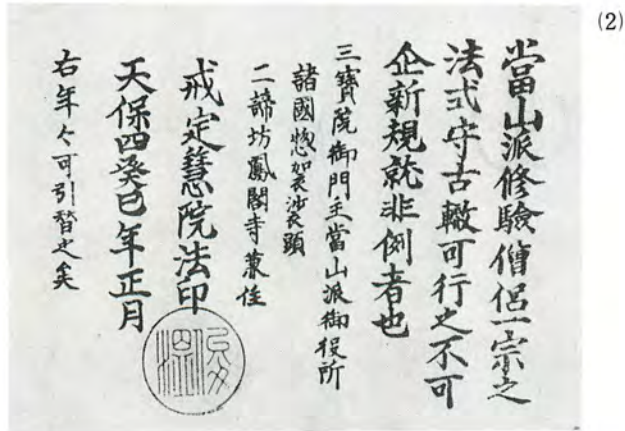 (2)
當山派修驗僧侶一宗之
法式守古轍可行之不可
企新規就非例者也
三寳院御門主當山派御役所
諸國惣袈裟頭
二諦坊鳳閣寺兼住
戒定慧院法印
天保四癸巳年正月
右年々可引替之矣